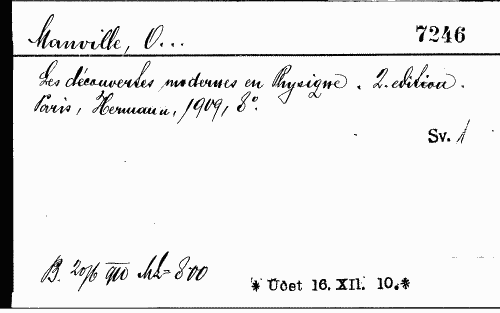 Manville, O...
7246
Les découvertes modernes en Physique. 2. edition.
Paris, Hermann, 1909, 8°.
Sv. 1
B. 20/6 910 ML=800
* Účet 16. XII. 10.*